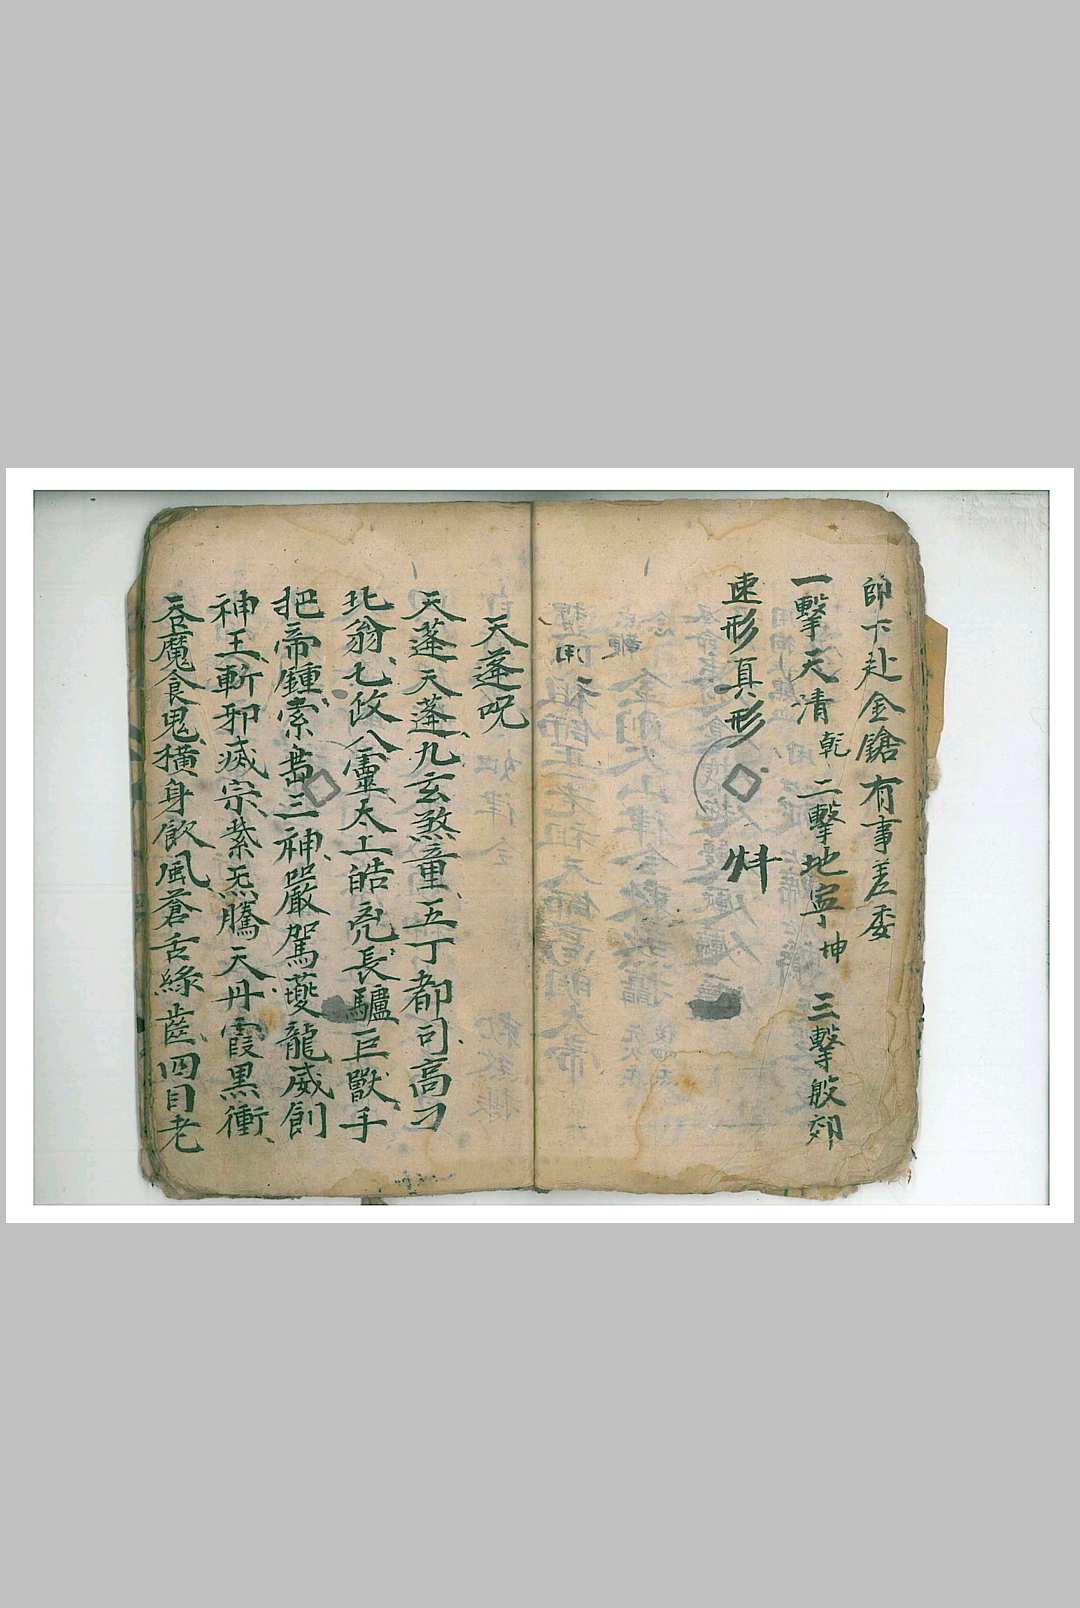 帥下赴金鎗有事差委
一擊天清乾二擊地寧坤三擊般郊
速形真形
天蓬呪
天蓬天蓬九玄煞童五丁都司高刁
北翁七政八靈太上皓凶長驢巨獸手
把帝鍾素梟三神嚴駕夔龍威劍
神王斬邪滅宗紫炁騰天丹霞黑衝
吞魔食鬼橫身飲風蒼舌綠齒四目老